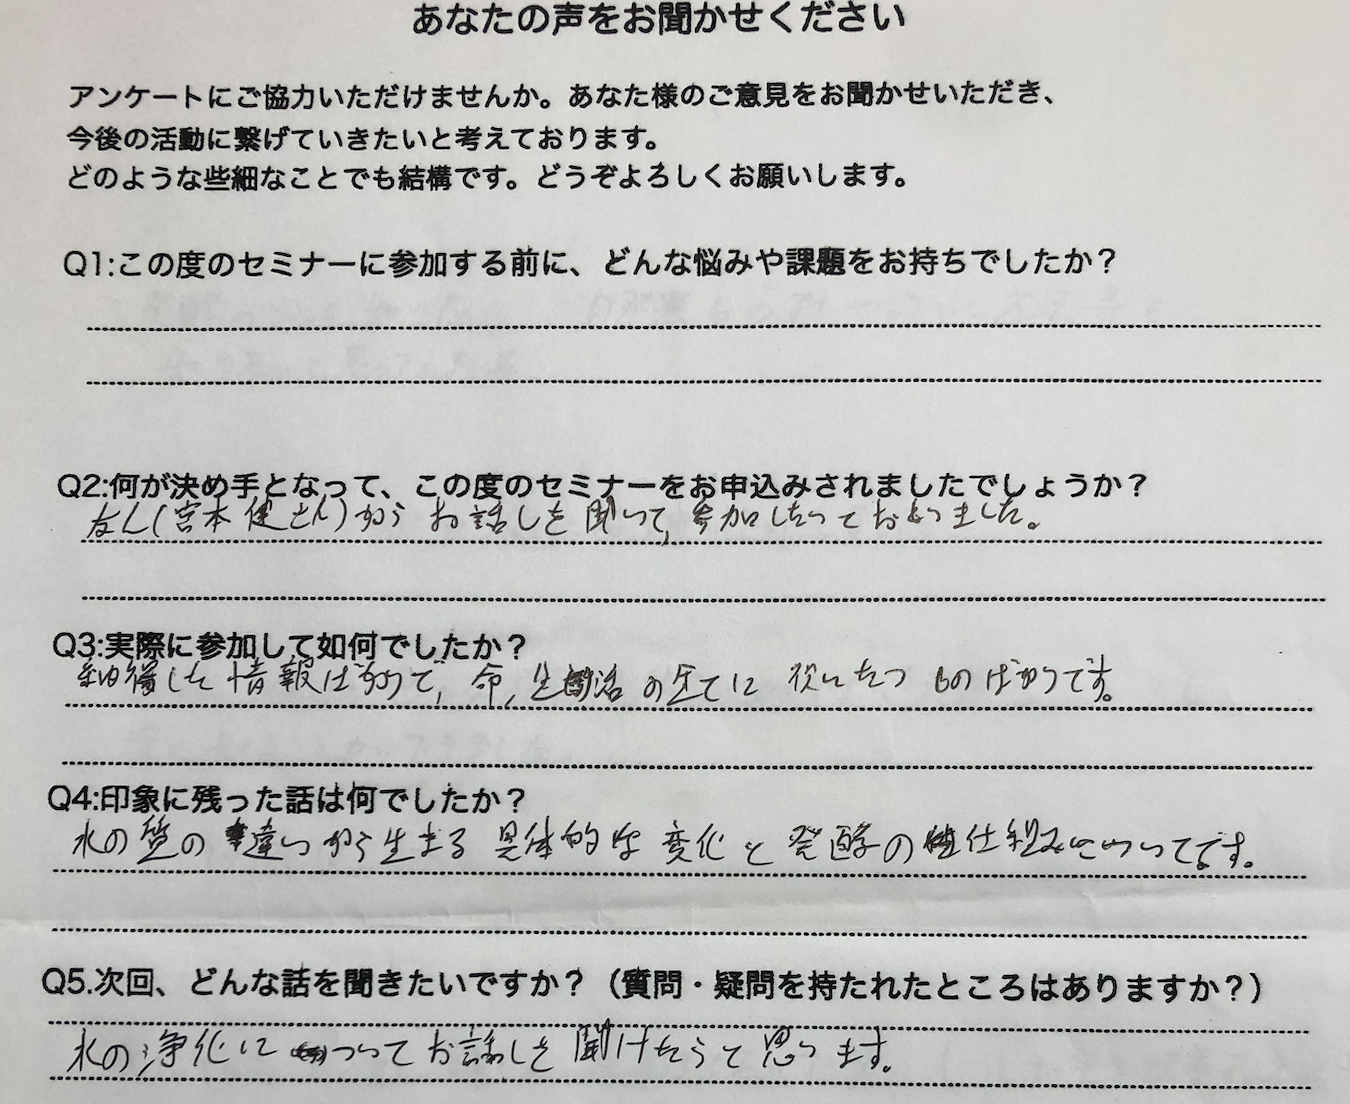 あなたの声をお聞かせください
アンケートにご協力いただけませんか。あなた様のご意見をお聞かせいただき、
今後の活動に繋げていきたいと考えております。
どのような些細なことでも結構です。どうぞよろしくお願いします。
Q1:この度のセミナーに参加する前に、どんな悩みや課題をお持ちでしたか？
Q2:何が決め手となって、この度のセミナーをお申込みされましたでしょうか？
友人(宮本 健さん)から お話しを聞いて、参加したいっておもいました。
Q3:実際に参加して如何でしたか？
納得した情報ばかりで、命、生活の全てに役にたつ ものばかりです。
Q4:印象に残った話は何でしたか？
水の質の違いから生まる 具体的な変化と発酵の仕組みについてです。
Q5.次回、どんな話を聞きたいですか？（質問・疑問を持たれたところはありますか？）
水の浄化に ついて お話しを聞けたらって思います。